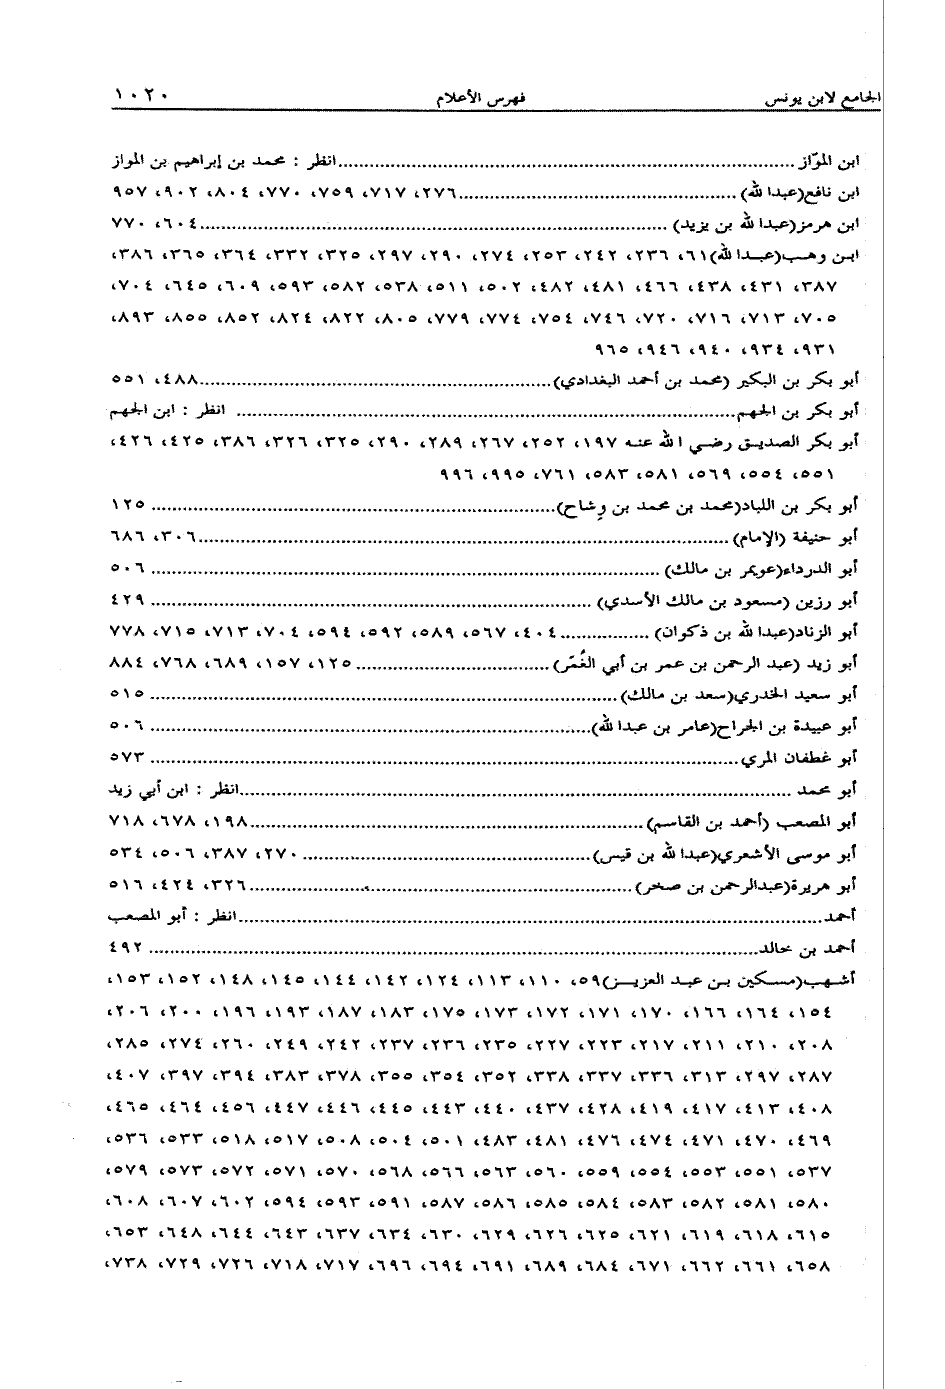 الجامع لابن يونس فهرس الأعلام ١٠٢٠
ابن الموّاز ......انظر : محمد بن إبراهيم بن المواز
ابن نافع(عبدا لله) ......٢٧٦، ٧١٧، ٧٥٩، ٧٧٠، ٨٠٤، ٩٠٢، ٩٥٧
ابن هرمز(عبدا لله بن يزيد) ......٦٠٤، ٧٧٠
ابن وهب(عبدا لله)٦١، ٢٣٦، ٢٤٢، ٢٥٣، ٢٧٤، ٢٩٠، ٢٩٧، ٣٢٥، ٣٣٢، ٣٦٤، ٣٦٥، ٣٨٦،
٣٨٧، ٤٣١، ٤٣٨، ٤٦٦، ٤٨١، ٤٨٢، ٥٠٢، ٥١١، ٥٣٨، ٥٨٢، ٥٩٣، ٦٠٩، ٦٤٥، ٧٠٤،
٧٠٥، ٧١٣، ٧١٦، ٧٢٠، ٧٤٦، ٧٥٤، ٧٧٤، ٧٧٩، ٨٠٥، ٨٢٢، ٨٢٤، ٨٥٢، ٨٥٥، ٨٩٣،
٩٣١، ٩٣٤، ٩٤٠، ٩٤٦، ٩٦٥
أبو بكر بن البكير (محمد بن أحمد البغدادي) ......٤٨٨، ٥٥١
أبو بكر بن الجهم ...... انظر : ابن الجهم
أبو بكر الصديق رضي الله عنه ١٩٧، ٢٥٢، ٢٦٧، ٢٨٩، ٢٩٠، ٣٢٥، ٣٢٦، ٣٨٦، ٤٢٥، ٤٢٦،
٥٥١، ٥٥٤، ٥٦٩، ٥٨١، ٥٨٣، ٧٦١، ٩٩٥، ٩٩٦
أبو بكر بن اللباد(محمد بن محمد بن وِشاح) ...... ١٢٥
أبو حنيفة (الإمام) ......٣٠٦، ٦٨٦
أبو الدرداء(عويمر بن مالك) ...... ٥٠٦
أبو رزين (مسعود بن مالك الأسدي) ...... ٤٢٩
أبو الزناد(عبدا لله بن ذكوان) ......٤٠٤، ٥٦٧، ٥٨٩، ٥٩٢، ٥٩٤، ٧٠٤، ٧١٣، ٧١٥، ٧٧٨
أبو زيد (عبد الرحمن بن عمر بن أبي الغُمّر) ......١٢٥، ١٥٧، ٦٨٩، ٧٦٨، ٨٨٤
أبو سعيد الخدري(سعد بن مالك) ...... ٥١٥
أبو عبيدة بن الجراح(عامر بن عبدا لله) ...... ٥٠٦
أبو غطفان المري ...... ٥٧٣
أبو محمد ......انظر : ابن أبي زيد
أبو المصعب (أحمد بن القاسم) ......١٩٨، ٦٧٨، ٧١٨
أبو موسى الأشعري(عبدا لله بن قيس) ......٢٧٠، ٣٨٧، ٥٠٦، ٥٣٤
أبو هريرة(عبدالرحمن بن صخر) ......٣٢٦، ٤٢٤، ٥١٦
أحمد ......انظر : أبو المصعب
أحمد بن خالد ...... ٤٩٢
أشهب(مسكين بن عبد العزيز)٥٩، ١١٠، ١١٣، ١٢٤، ١٤٢، ١٤٤، ١٤٥، ١٤٨، ١٥٢، ١٥٣،
١٥٤، ١٦٤، ١٦٦، ١٧٠، ١٧١، ١٧٢، ١٧٣، ١٧٥، ١٨٣، ١٨٧، ١٩٣، ١٩٦، ٢٠٠، ٢٠٦،
٢٠٨، ٢١٠، ٢١١، ٢١٧، ٢٢٣، ٢٢٧، ٢٣٥، ٢٣٦، ٢٣٧، ٢٤٢، ٢٤٩، ٢٦٠، ٢٧٤، ٢٨٥،
٢٨٧، ٢٩٧، ٣١٣، ٣٣٦، ٣٣٧، ٣٣٨، ٣٥٢، ٣٥٤، ٣٥٥، ٣٧٨، ٣٨٣، ٣٩٤، ٣٩٧، ٤٠٧،
٤٠٨، ٤١٣، ٤١٧، ٤١٩، ٤٢٨، ٤٣٧، ٤٤٠، ٤٤٣، ٤٤٥، ٤٤٦، ٤٤٧، ٤٥٦، ٤٦٤، ٤٦٥،
٤٦٩، ٤٧٠، ٤٧١، ٤٧٤، ٤٧٦، ٤٨١، ٤٨٣، ٥٠١، ٥٠٤، ٥٠٨، ٥١٧، ٥١٨، ٥٣٣، ٥٣٦،
٥٣٧، ٥٥١، ٥٥٣، ٥٥٤، ٥٥٩، ٥٦٠، ٥٦٣، ٥٦٦، ٥٦٨، ٥٧٠، ٥٧١، ٥٧٢، ٥٧٣، ٥٧٩،
٥٨٠، ٥٨١، ٥٨٢، ٥٨٣، ٥٨٤، ٥٨٥، ٥٨٦، ٥٨٧، ٥٩١، ٥٩٣، ٥٩٤، ٦٠٢، ٦٠٧، ٦٠٨،
٦١٥، ٦١٨، ٦١٩، ٦٢١، ٦٢٥، ٦٢٦، ٦٢٩، ٦٣٠، ٦٣٤، ٦٣٧، ٦٤٣، ٦٤٤، ٦٤٨، ٦٥٣،
٦٥٨، ٦٦١، ٦٦٢، ٦٧١، ٦٨٤، ٦٨٩، ٦٩١، ٦٩٤، ٦٩٦، ٧١٧، ٧١٨، ٧٢٦، ٧٢٩، ٧٣٨،